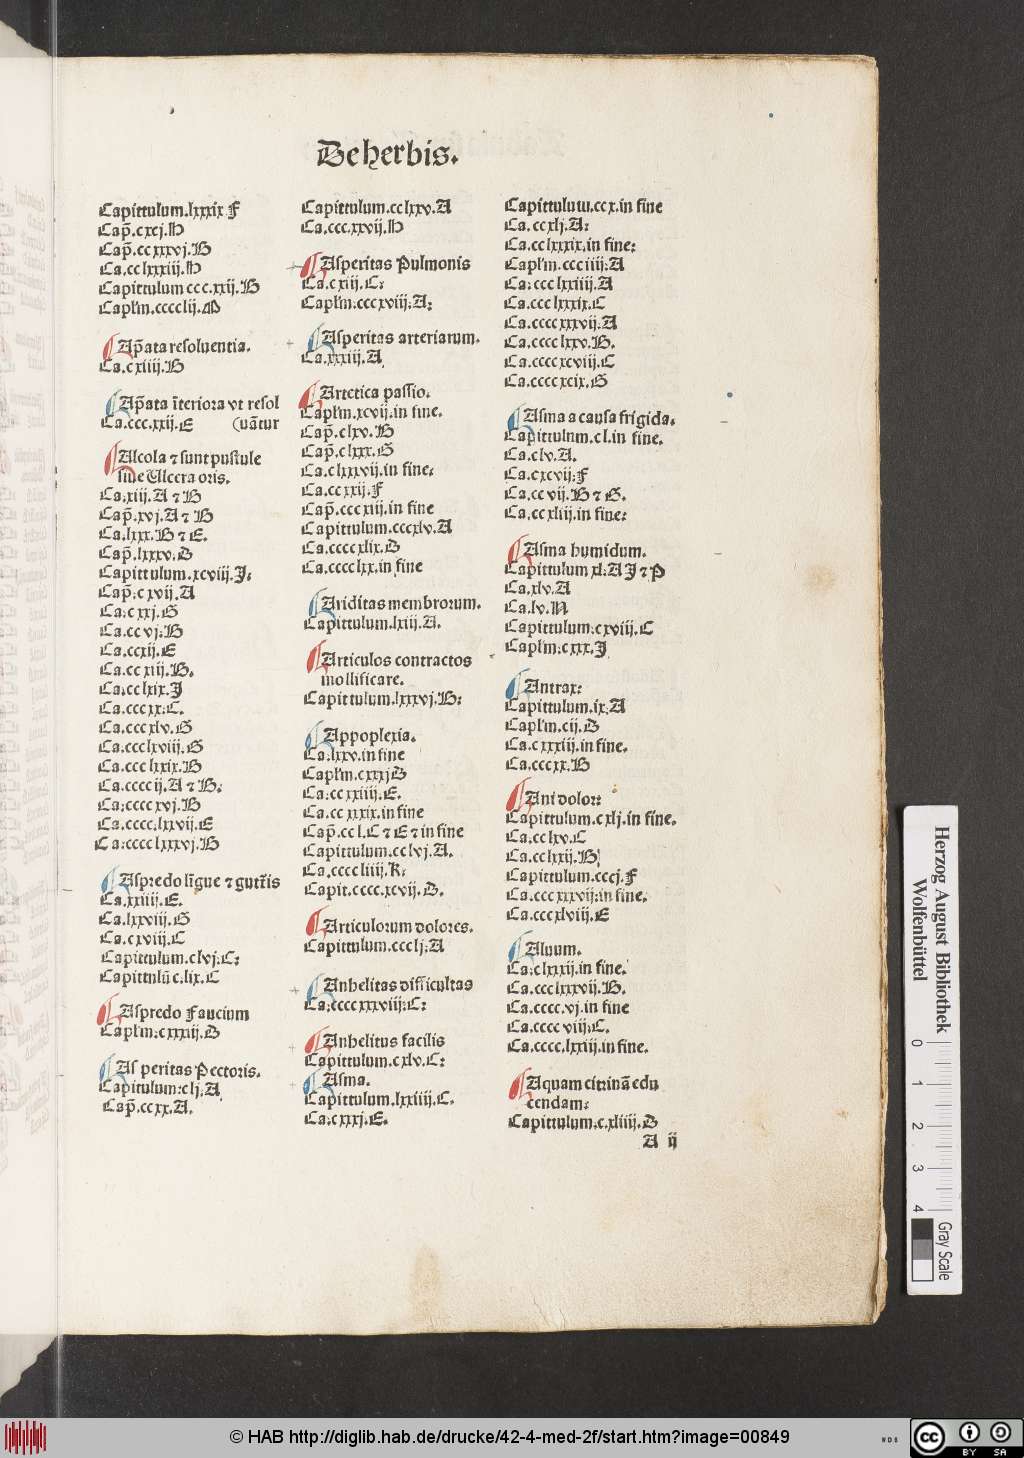 De herbis.
Capittulum.lxxxix F
Cap̄.cxcj.H
Cap̄.ccxxxvj.B
Ca.cclxxxiij.H
Capittulum ccc.xxij.B
Caplm̄.cccclij.M
Ap̄ata resoluentia.
Ca.cxliij.B
Ap̄ata īteriora vt resol
Ca.ccc.xxij.E (uātur
Alcola ⁊ sunt pustule
siue Ulcera oris.
Ca.xiij.A ⁊ B
Cap̄.xvj.A ⁊ B
Ca.lxx.B ⁊ E.
Cap̄.lxxxv.D
Capittulum.xcviij.J:
Cap̄:c xvij.A
Ca:c xxj.G
Ca.cc vj:B
Ca.ccxij.E
Ca.cc xiij.B.
Ca.cclxix.J
Ca.cccxx:C.
Ca.ccc xlv.G
Ca.ccclxviij.G
Ca.ccc lxxix.B
Ca.cccc ij.A ⁊ B:
Ca:cccc xvj.B
Ca.cccc.lxxvij.E
Ca:cccc lxxxvj.B
Aspredo līgue ⁊ guttīs
Ca.xxiiij.E.
Ca.lxxviij.G
Ca.c xviij.C
Capittulum.clvj.C:
Capittulū c.lix.C
Aspredo Faucium
Caplm̄:c xxxiij.D
As peritas Pectoris.
Capitulum:clj.A
Cap̄.ccxx.A.
Capittulum.cclxxv.A
Ca.ccc.xxvij.H
Asperitas Pulmonis
Ca.c xiij.C:
Caplm̄:cccxviij:A:
Asperitas arteriarum.
Ca.xxxiij.A
Artetica passio.
Caplm̄.xcvij.in fine.
Cap̄.c lxv.B
Cap̄.c lxxx.G
Ca.c lxxxvij.in fine:
Ca.cc xxij.F
Cap̄.ccc xiij.in fine
Capittulum.cccxlv.A
Ca.cccc xlix.D
Ca.cccc lxx.in fine
Ariditas membrorum.
Capittulum.lxiij.A.
Articulos contractos
mollificare.
Capittulum.lxxxvj.B:
Appoplexia.
Ca:lxxv.in fine
Caplm̄.cxxxjD
Ca:cc xxiiij.E.
Ca.cc xxxix.in fine
Cap̄.cc l.C ⁊ E ⁊ in fine
Capittulum.cc lvj.A.
Ca.cccc liiij.K:
Capit.cccc.xcvij.D.
Articulorum dolores.
Capittulum.ccclj:A
Anhelitas difficultas
Ca:ccccxxxviij:C:
Anhelitus facilis
Capittulum.cxlv.C:
Asma.
Capittulum.lxxiiij.C.
Ca:cxxxj.E.
Capittulum.ccx.in fine
Ca.ccxlj.A:
Ca.cclxxxix.in fine:
Caplm̄.ccciiij:A
Ca:ccclxxiiij.A
Ca.ccclxxxix.C
Ca.ccccxxxvij.A
Ca.cccclxxv.B.
Ca.ccccxcviij.C
Ca.ccccxcix.G
Asma a causa frigida.
Capittulum.cl.in fine.
Ca.clv.A.
Ca.cxcvij:F
Ca.cc vij.B ⁊ G.
Ca.ccxliij.in fine:
Asma humidum.
Capittulum xl:A J ⁊ P
Ca.xlv.A
Ca.lv.N
Capittulum:cxviij.C
Caplm̄:cxxx.J
Antrax:
Capittulum.ix.A
Caplm̄.cij.D
Ca.cxxxiij.in fine.
Ca.cccxx.B
Ani dolor:
Capittulum.cxlj.in fine.
Ca.cclxv.C
Ca.cclxxij.B
Capittulum.cccj.F
Ca.cccxxxvij:in fine.
Ca.cccxlviij.E
Aluum.
Ca:clxxxij.in fine.
Ca.ccclxxxvij.B.
Ca.cccc.vj.in fine
Ca.cccc viij:C.
Ca.cccc.lxxij.in fine.
Aquam citrinā edu
cendam:
Capittulum:c.xliiij.D
A ij
Herzog August Bibliothek
Wolfenbüttel
0 1 2 3 4
Gray Scale
© HAB http://diglib.hab.de/drucke/42-4-med-2f/start.htm?image=00849
WDB
cc BY SA